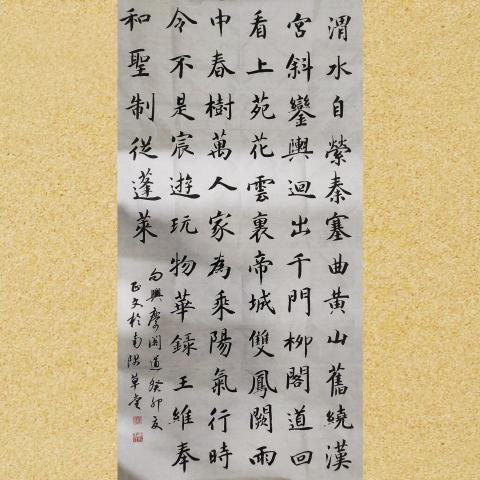 渭水自縈秦塞曲黄山舊繞漢
宮斜鑾輿迴出千門柳閣道回
看上苑花雲裏帝城雙鳳闕雨
中春樹萬人家為乘陽氣行時
令不是宸遊玩物華録王維奉
和聖制從蓬萊
向興慶閣道癸卯夏
正文於南草堂